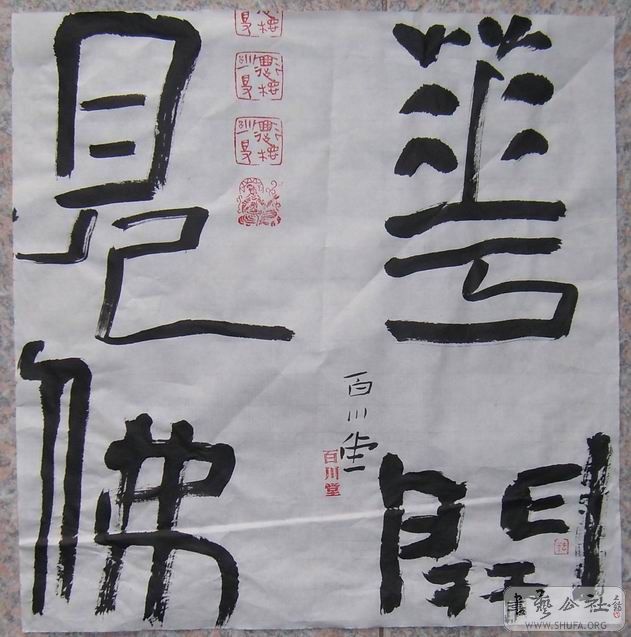 華開
見佛
百川堂
百川堂
書藝公社
WWW.SHUFA.ORG